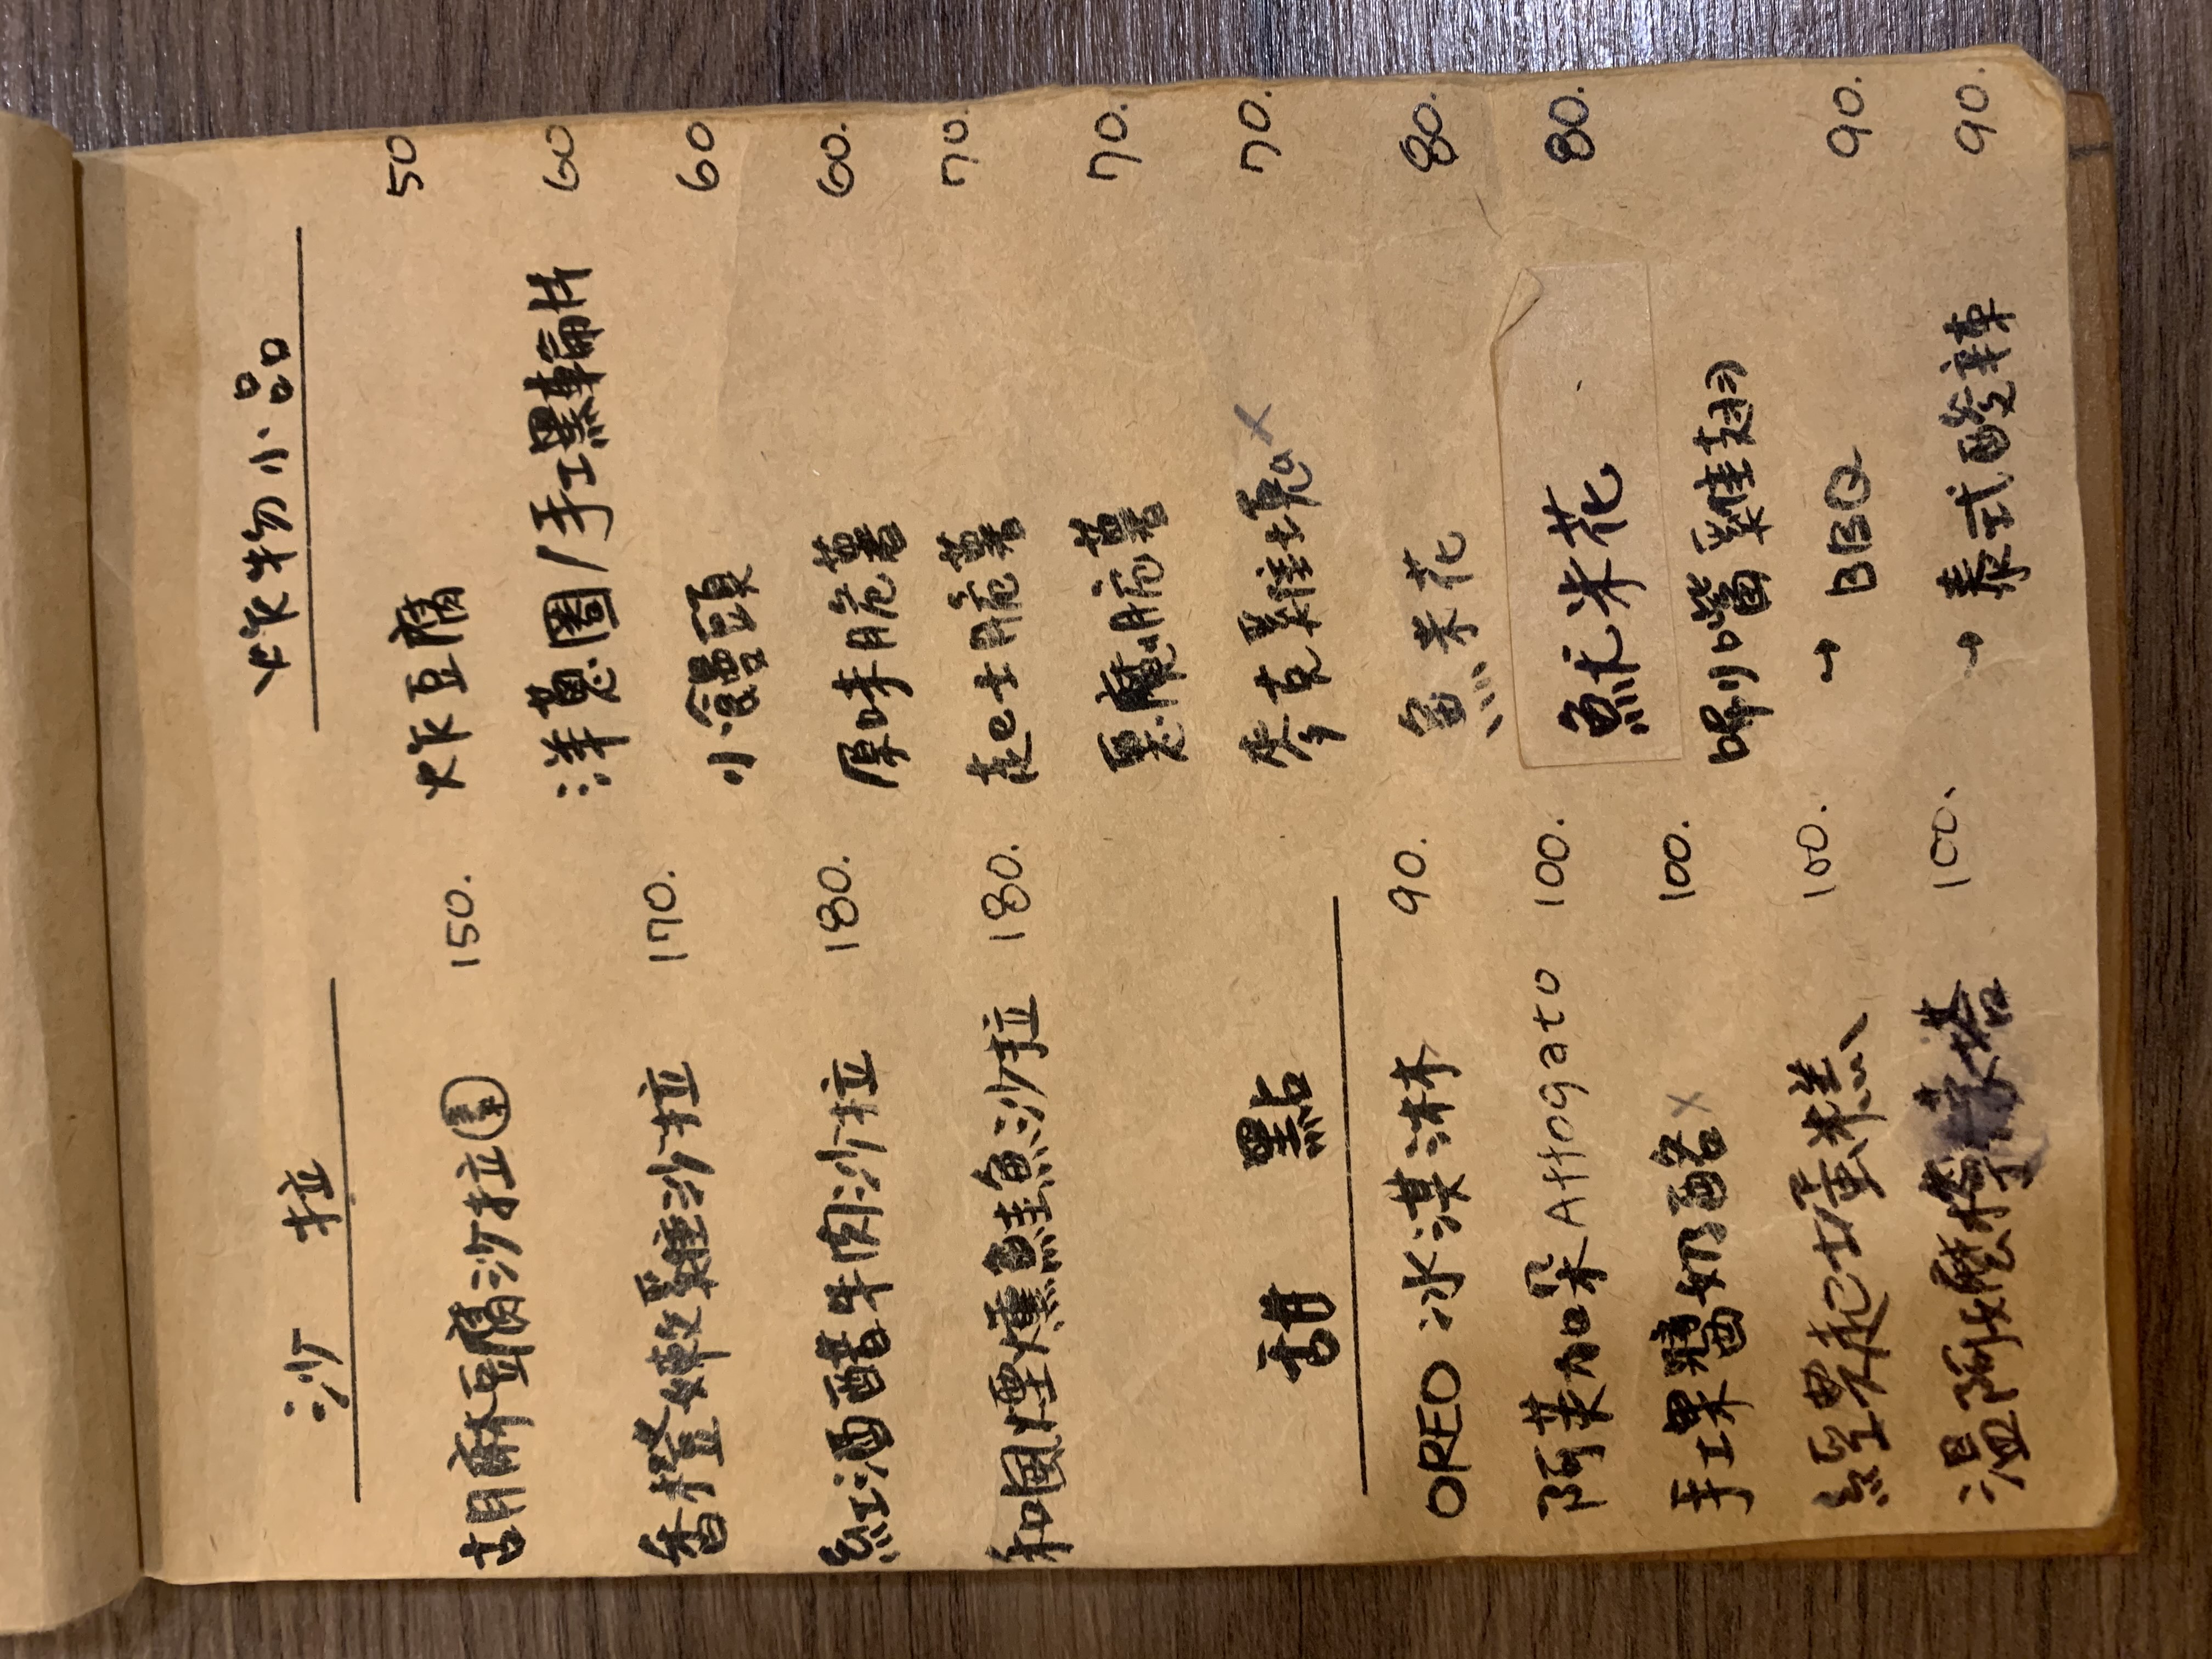 沙拉
胡麻豆腐沙拉 素 150.
香橙嫩雞沙拉 170.
紅酒醋牛肉沙拉 180.
和風煙燻鮭魚沙拉 180.
甜點
OREO 冰淇淋 90.
阿芙加朵 Affogato 100.
手工果醬奶酪 x 100.
經典起士蛋糕 100.
溫阿嬤檸檬塔 100.
炸物小品
炸豆腐 50
洋蔥圈/手工黑輪片 60
小饅頭 60
原味脆薯 60.
起士脆薯 70.
惡魔脆薯 70.
麥克雞塊 x 70.
魚米花 80.
魷米花 80.
唰嘴雞翅
→ BBQ 90.
→ 泰式酸辣 90.